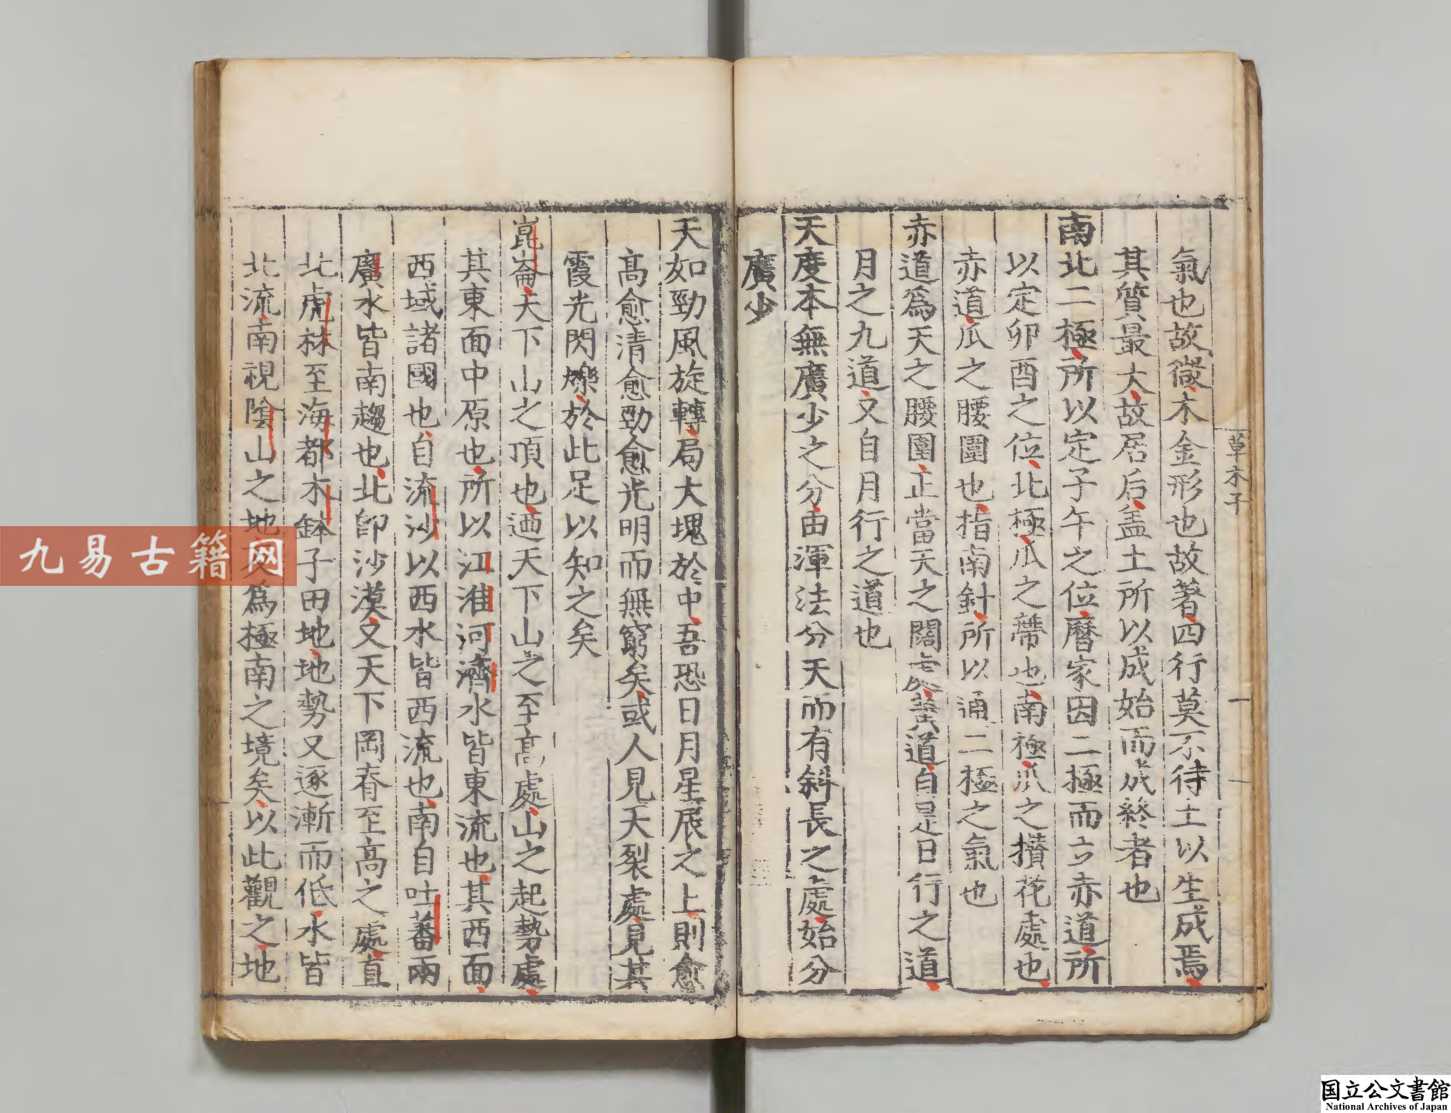 氣也故㣲木金形也故著四行莫不待土以生成焉
其質最大故居后盖土所以成始而成終者也
南北二極所以定子午之位曆家因二極而立赤道所
以定卯酉之位北極瓜之蔕也南極瓜之攅花處也
赤道瓜之腰圍也指南針所以通二極之氣也
赤道爲天之腰圍正當天之闊處黄道自是日行之道
月之九道又自月行之道也
天度本無廣少之分由渾法分天而有斜長之處始分
廣少
草木子
一
天如勁風旋轉局大塊於中吾恐日月星辰之上則愈
高愈清愈勁愈光明而無窮矣或人見天裂處見其
霞光閃爍於此足以知之矣
崑崙天下山之頂也迺天下山之至高處山之起勢處
其東面中原也所以江淮河濟水皆東流也其西面
西域諸國也自流沙以西水皆西流也南自吐蕃兩
廣水皆南趨也北卽沙漠又天下岡脊至高之處直
北虎林至海都木鉢子田地地勢又逐漸而低水皆
北流南視陰山之地爲極南之境矣以此觀之地
九易古籍网
国立公文書館
National Archives of Japan